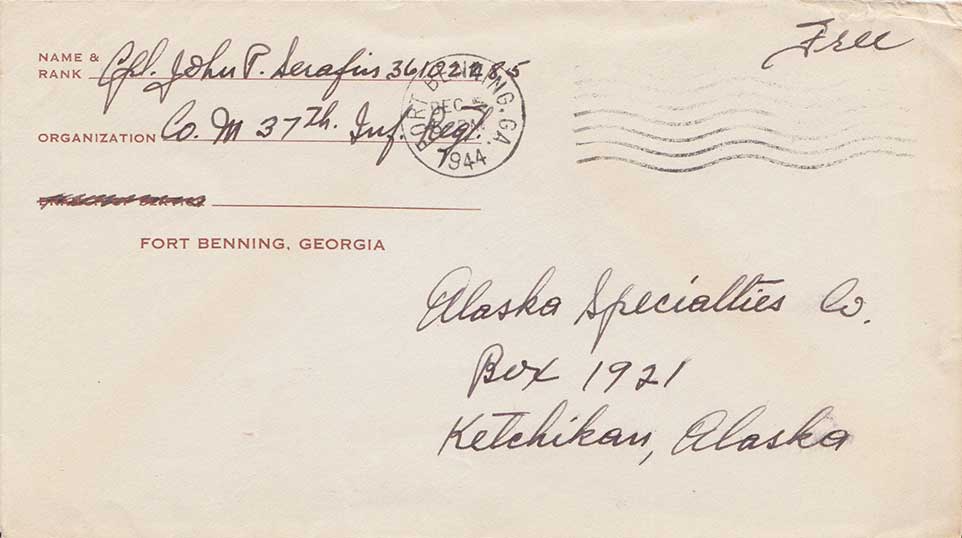 Free
NAME &
RANK Cpl. John P. Serafin 36102485
ORGANIZATION Co. M 37th. Inf. Regt.
FORT BENNING, GA.
DEC
1944
FORT BENNING, GEORGIA
Alaska Specialties Co.
Box 1921
Ketchikan, Alaska